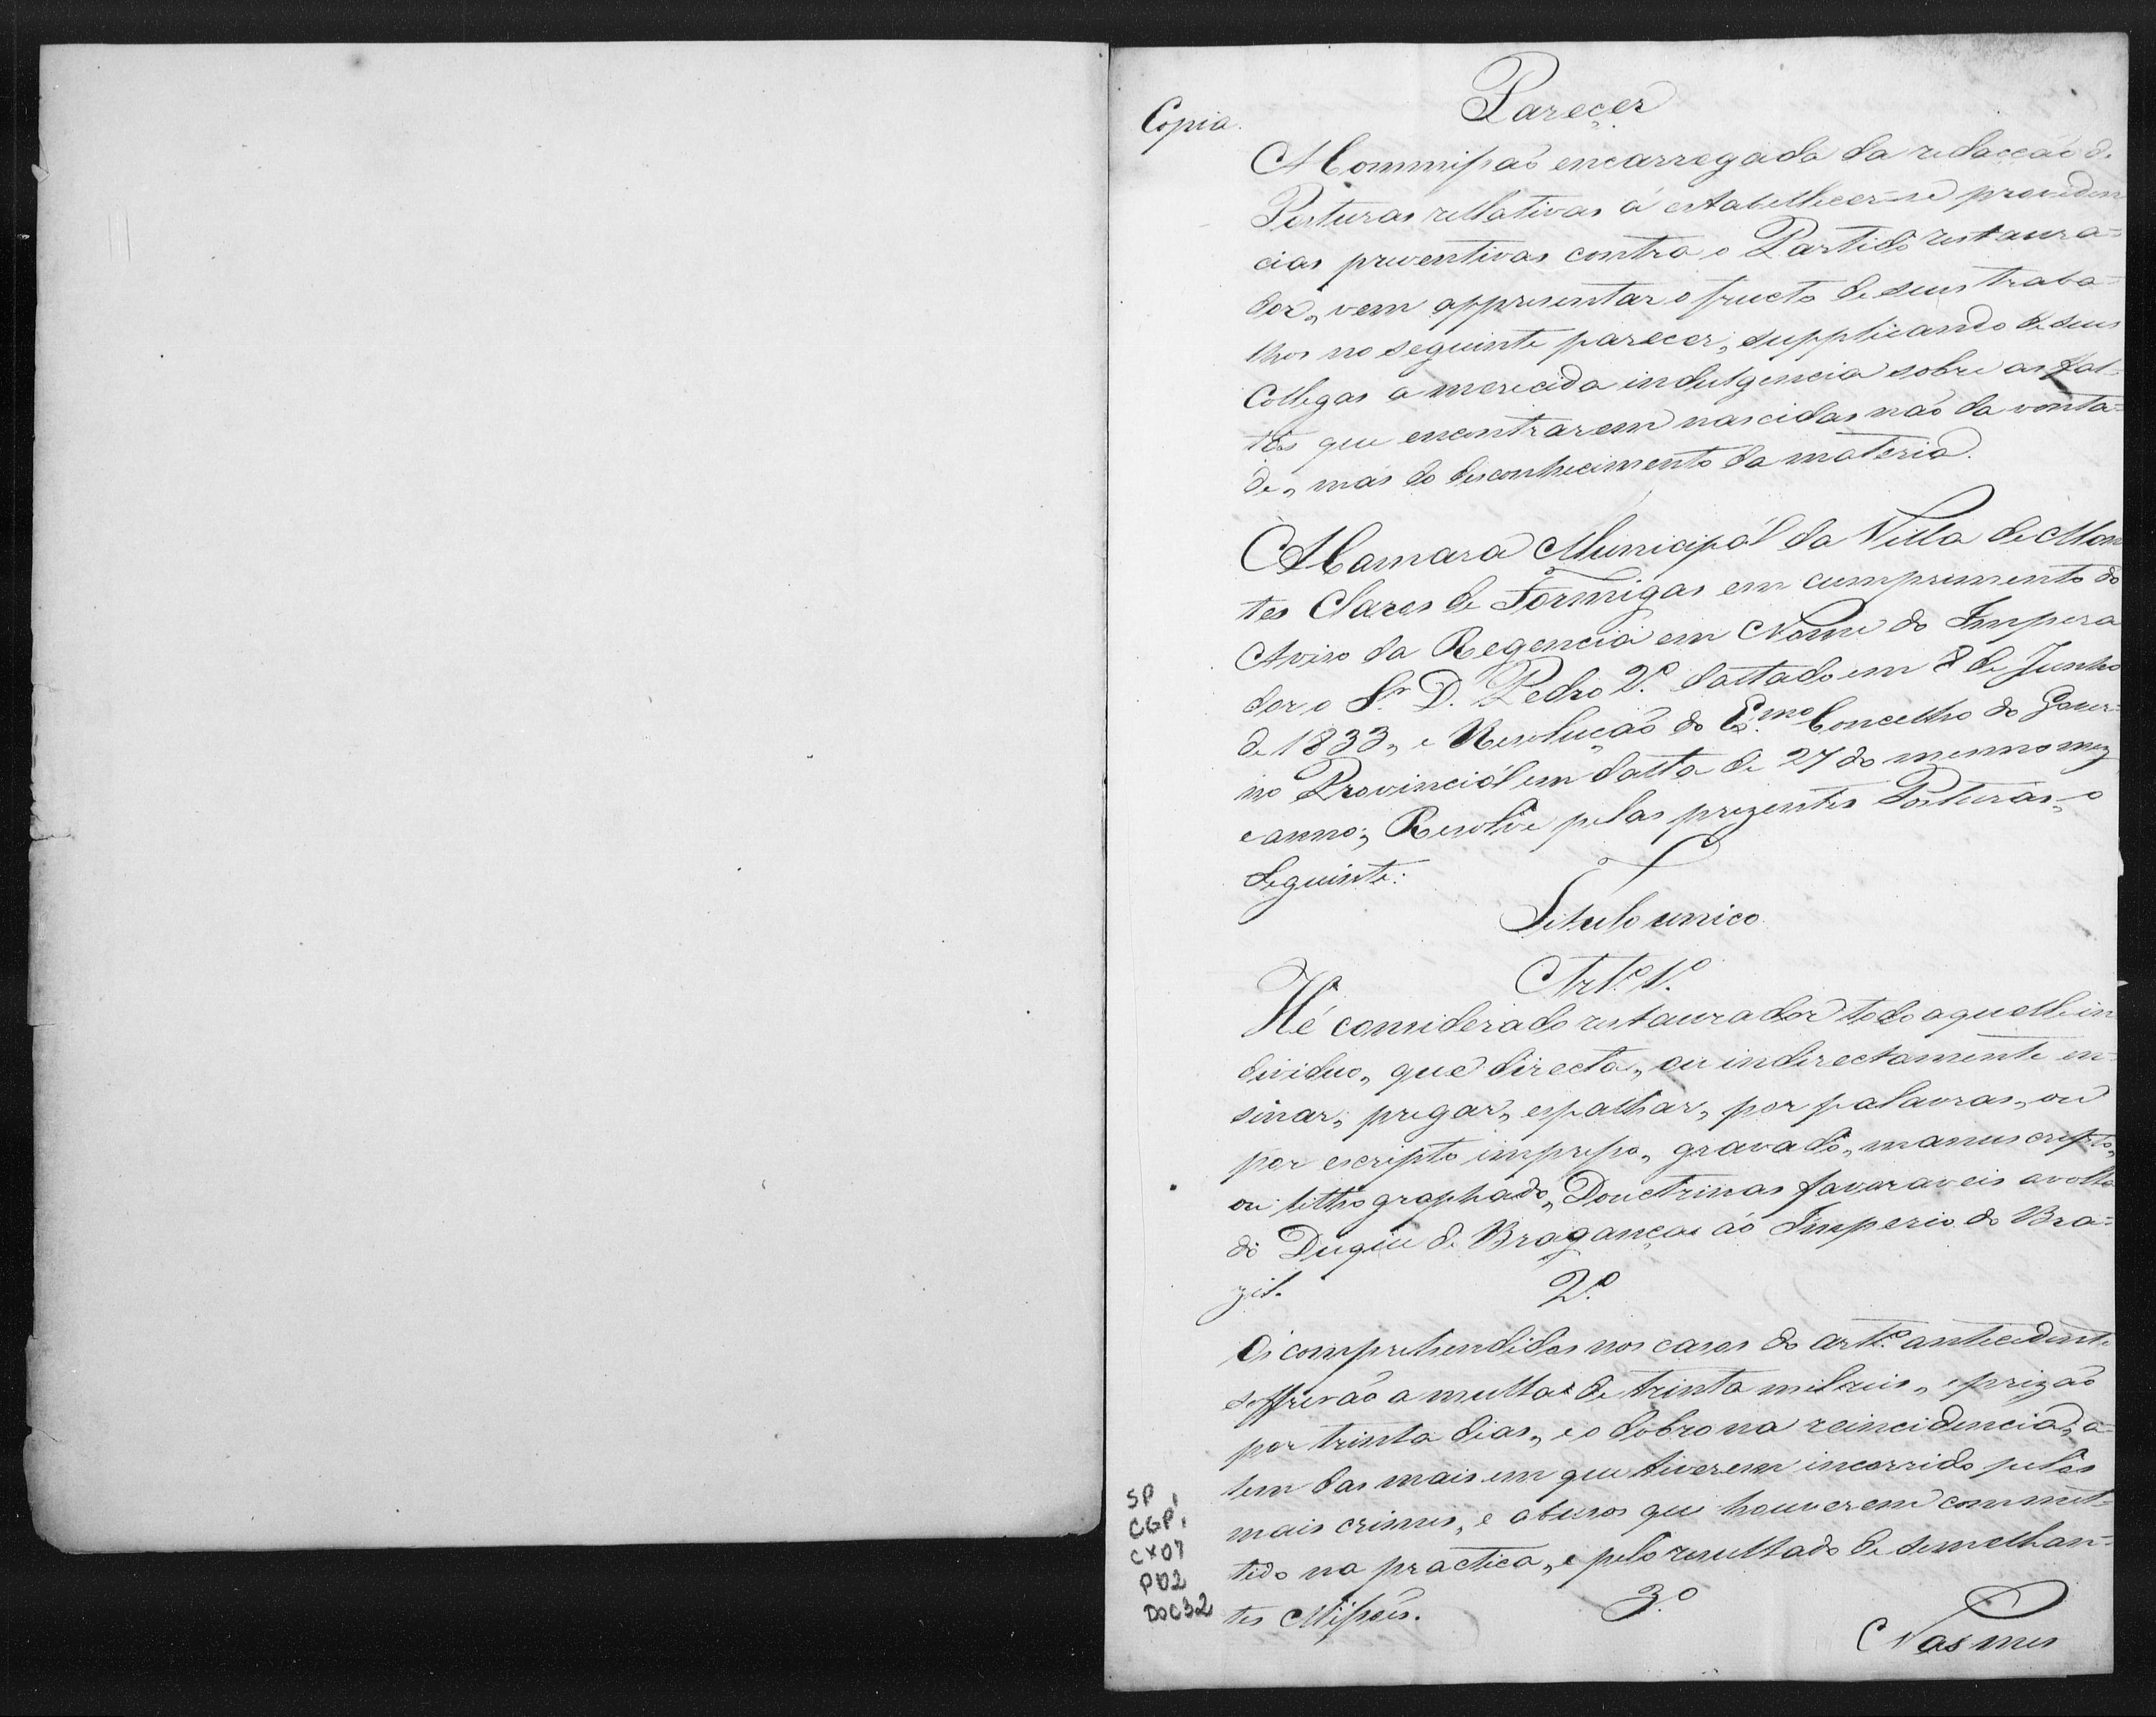 Copia.
Parecer
A Commissaõ encarregada da redacçaõ de
Posturas rellativas á estabellecer-se providen
cias preventivas contra o Partido restaura=
dor, vem appresentar o fructo de seus traba=
lhos no seguinte parecer, supplicando de seus
Collegas a merecida indulgencia sobre as fal-
tas que encontrarem nascidas naõ da vonta=
de, mas do desconhecimento da materia.
A Camara Municipál da Villa de Mon
tes Claros de Formigas em cumprimento do
Aviso da Regencia em Nome do Impera
dor o Sr. D. Pedro 2.º dattado em 8 de Junho
de 1833, e Resoluçaõ do Ex.mo Concelho do Gover=
no Provinciál em datta de 27 do mesmo mez
e anno, Resolve pelas prezentes Posturas, o
Seguinte:
Titulo unico
Art.º 1.º
Hé considerado restaurador todo aquelle in
dividuo, que directa, ou indirectamente en=
sinar, pregar, espalhar, por palavras, ou
por escripto impresso, gravado, manuscripto,
ou litthographado, Douctrinas favoraveis a volta
do Duque de Bragança ao Imperio do Bra=
zil.
2.º
Os comprehendidos nos casos do art.º antecedente
soffreraõ a multa de trinta mil reis, e prizaõ
por trinta dias, e o dobro na reincidencia, a=
lem das mais em que tiverem incorrido pelos
mais crimes, e abusos que houverem commet=
tido na practica, e pelo resultado de semelhan=
tes Missoẽs.
3.º
Nas mes
SP
CGP1
CX07
P02
DOC32